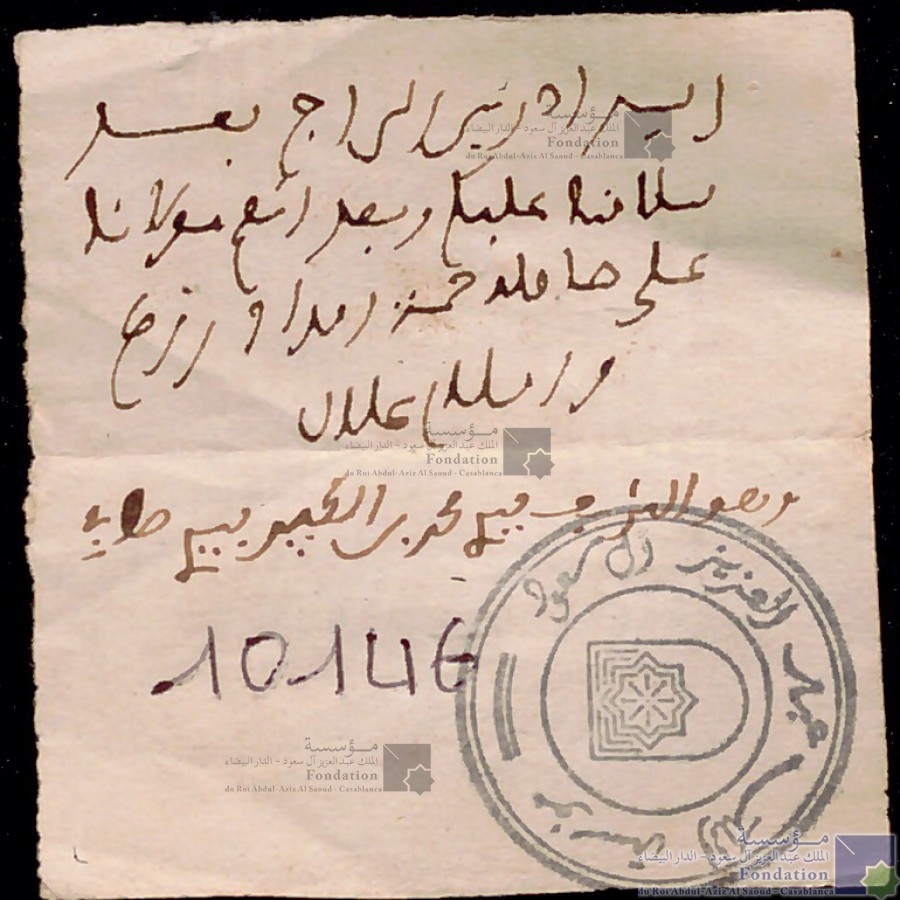 السيد ادريس السراج بعد
سلامنا عليكم وبعد ادفع مولانا
على حامله خمسة امداد زرع
والسلام علال
وهو الشريف سيدي محمد بن الكبير
10146
مؤسسة
الملك عبد العزيز آل سعود - الدار البيضاء
Fondation
du Roi Abdul-Aziz Al Saoud - Casablanca
مؤسسة
الملك عبد العزيز آل سعود - الدار البيضاء
Fondation
du Roi Abdul-Aziz Al Saoud - Casablanca
عبد العزيز آل سعود
مؤسسة
الملك عبد العزيز آل سعود - الدار البيضاء
Fondation
du Roi Abdul-Aziz Al Saoud - Casablanca
مؤسسة
الملك عبد العزيز آل سعود - الدار البيضاء
Fondation
du Roi Abdul-Aziz Al Saoud - Casablanca